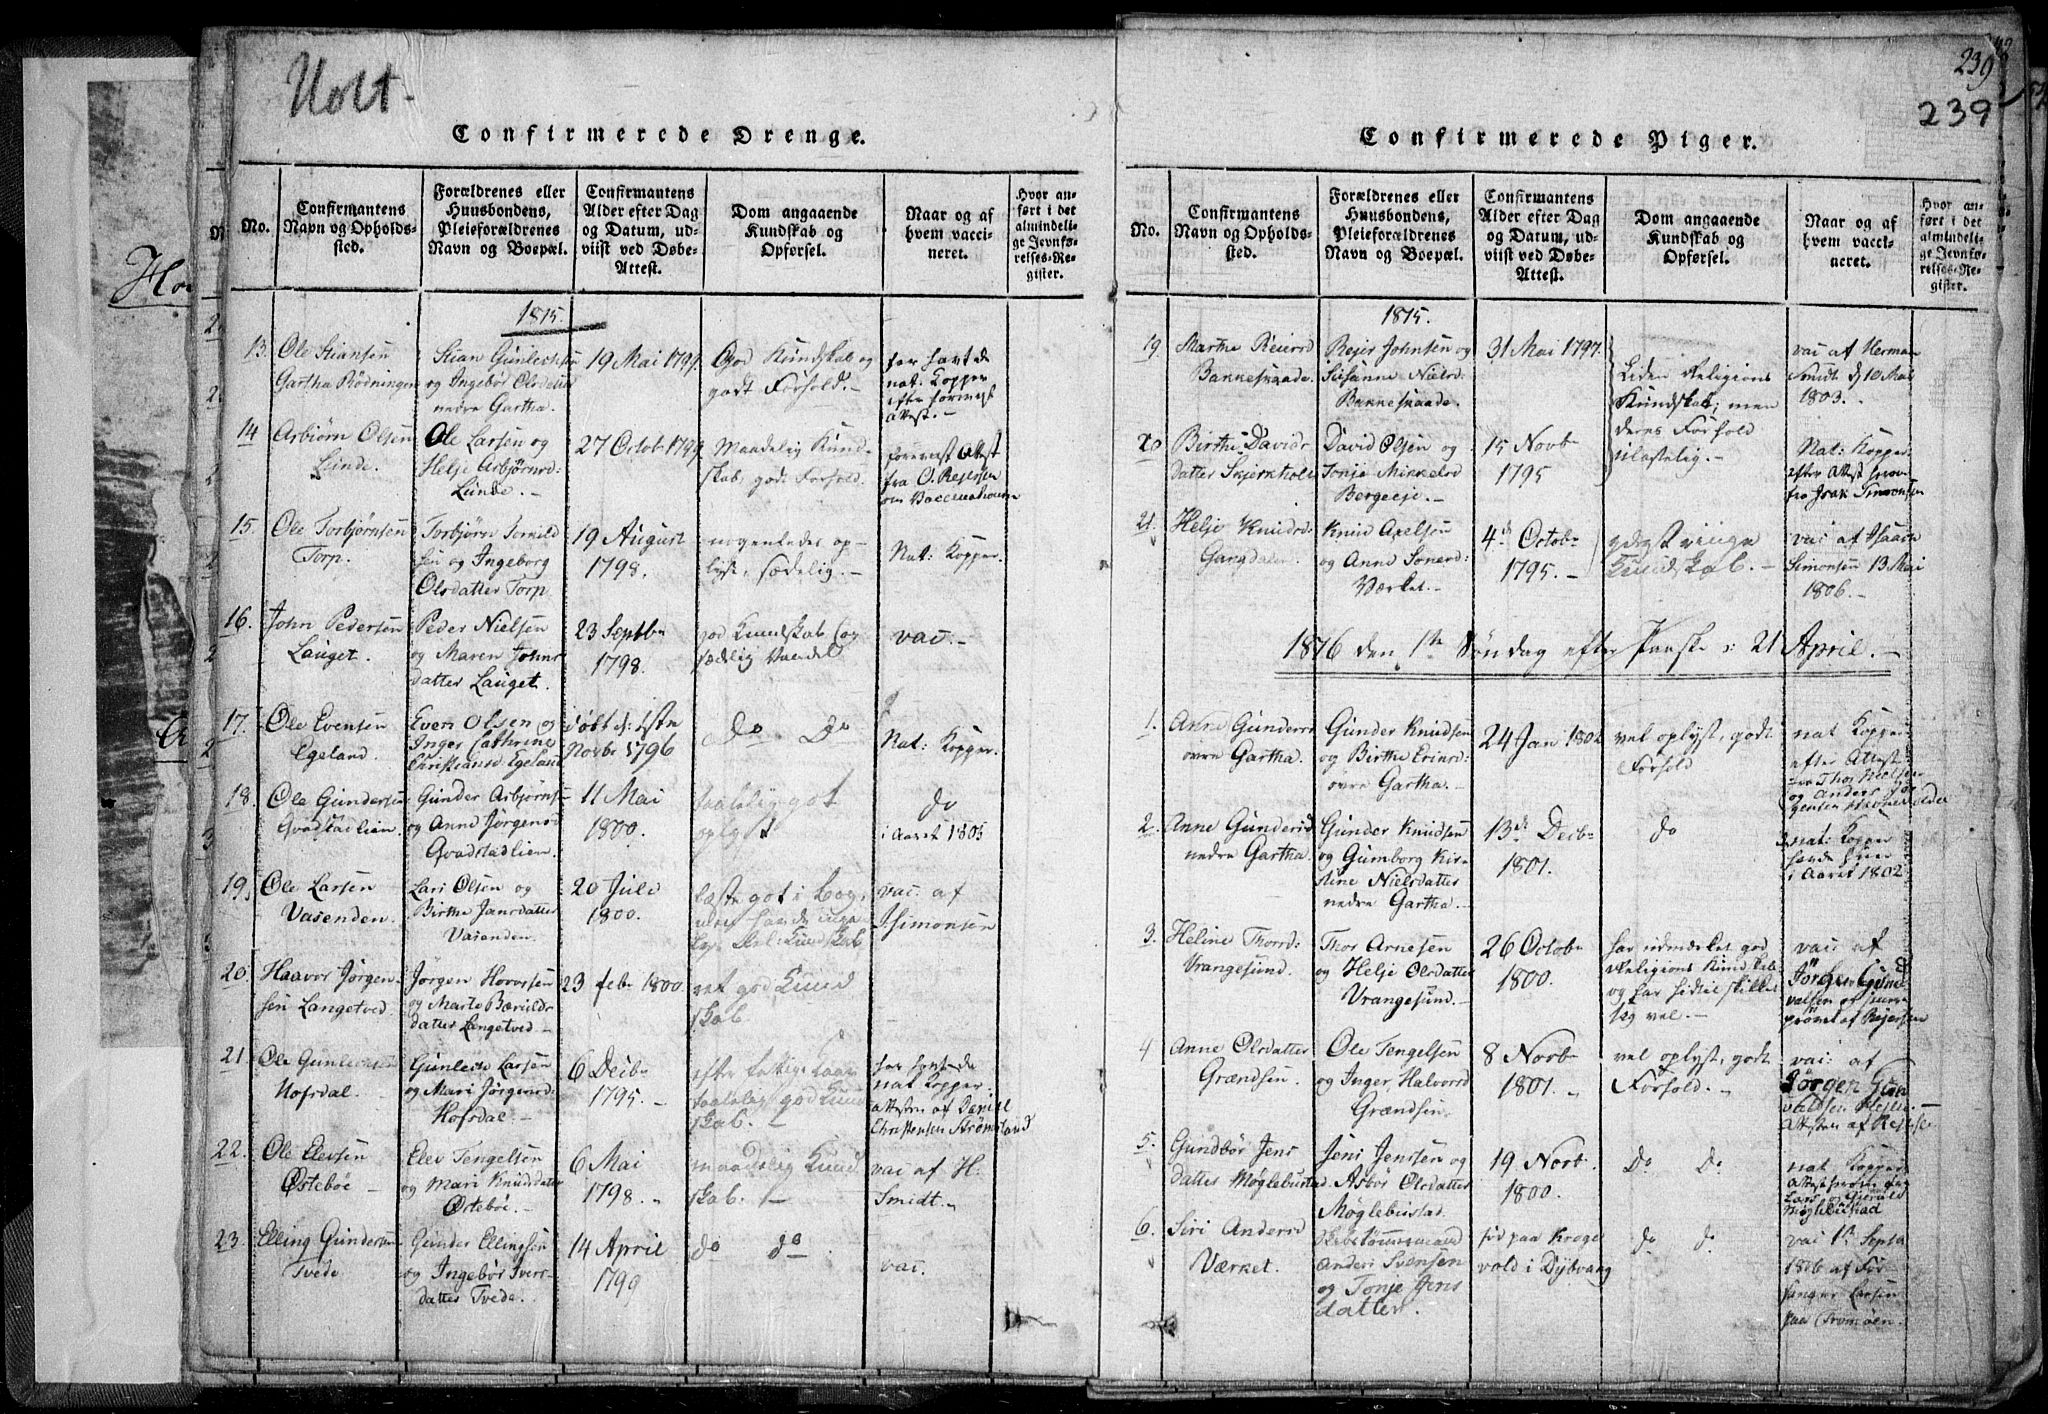 Holt
239
239
Confirmerede Drenge.
No.
Confirmantens
Navn og Opholds-
sted.
Forældrenes eller
Huusbondens,
Pleieforældrenes
Navn og Boepæl.
Confirmantens
Alder efter Dag
og Datum, ud-
viist ved Døbe-
Attest.
Dom angaaende
Kundskab og
Opførsel.
Naar og af
hvem vacci-
neret.
Hvor an-
ført i det
almindeli-
ge Jevnfø-
relses-Re-
gister.
1815.
13.
Ole Stiansen
Gartha Rödningen
Stian Gunlechsen
og Ingebør Olsdatter
nedre Gartha.
19 Mai 1799.
God Kundskab og
godt Forhold.-
har havt de
nat: Kopper
efter
Attest.-
14
Arbiörn Olsen
Lunde.
Ole Larsen og
Helje Arbjörnsd:
Lunde.-
27 Octob 1799
Maadelig Kund-
skab, godt Forhold.
Attest
fra O. Rejersen
om Vaccinationen
15.
Ole Torbjörnsen
Torp.
Torbjörn Torkild
sen og Ingeborg
Olsdatter Torp
19 August
1798.
nogenledes op-
lyst, sædelig.-
Nat: Kopper.
16.
John Pedersen
Lauget.
Peder Nielsen
og Maren Johns
datter Lauget.
23 Septbr
1798.
god Kundskab og
sædelig Vandel
vac:-
17.
Ole Evensen
Egeland.
Even Olsen og
Inger Cathrine
Christiansd Egeland
döbt d: 1ste
Novbr 1796
Do Do
Nat: Kopper.
18.
Ole Gundersen
Qvadstadlien
Gunder Arbjörns
og Anne Jörgensd
Qvadstadlien.
11 Mai
1800.
taalelig got
oplyst
do
i Aaret 1805
19.
Ole Larsen
Vasenden.
Lars Olsen og
Birthe Jansdatter
Vasenden.
20 Juli
1800.
læste got i Bog,
men havde inga
Rel: Kundskab
vac: af
I. Simonsen
20.
Haavor Jörgen-
sen Langetved
Jörgen Hovorsen
og Marte Bærulds
datter Langetved-
23 febr 1800.
ret god Kund
skab.
21
Ole Gunlechsen
Hofsdal.
Gunlech Larsen
og Mari Jörgensd
Hofsdal.-
6 Decbr
1795.-
efter
taalelig god Kund
skab.-
har havt de
nat Kopper.
Attesten af Daniel
Christensen Strömsland
22.
Ole Elevsen
Östeböe-
Elev Tengelsen
og Mari Knudsdatter
Östeböe.-
6 Mai
1798.-
maadelig Kund
skab.-
vac af H:
Smidt.
23.
Elling Gundersen
Tvede
Gunder Ellingsen
og Ingebör Ivers
datter Tvede.
14 April
1799
do do
vac.
Confirmerede Piger.
No.
Confirmantens
Navn og Opholds-
sted.
Forældrenes eller
Huusbondens,
Pleieforældrenes
Navn og Boepæl.
Confirmantens
Alder efter Dag
og Datum, ud-
viist ved Døbe-
Attest.
Dom angaaende
Kundskab og
Opførsel.
Naar og af
hvem vacci-
neret.
Hvor an-
ført i det
almindeli-
ge Jevnfø-
relses-Re-
gister.
1815.
19
Marthe Reiersd
Bakkeskaade.
Rejer Johnsen og
Susanne Nielsd.
Bakkeskaade.
31 Mai 1797.
Liden Religions
Kundskab; men
deres Forhold
ulastelig.
vac af Herman
Smidt d 10 Mai
1803.
20
Birthe Davids
datter Skjerkholt
David Olsen og
Tonje Mikkelsd
Bergeeje.-
15 Novb
1795
Nat: Kopper
efter Attest
fra Isak Simonsen
21.
Helje Knudsd:
Gangdalen.
Knud Axelsen
og Anne
Værket.-
4de Octobr
1795.-
yderst ringe
Kundskab.-
vac af Isaach
Simonsen 13 Mai
1806.-
1816 den 1te Söndag efter Paaske: 21 April.-
1.
Anne Gundersd
övre Gartha.
Gunder Knudsen
og Birthe
övre Gartha.-
24 Jan 1802
vel oplyst, godt
Forhold
nat Kopper
efter Attest
fra Thor Nielsen
og Anders Jör
gensen
2.
Anne Gundersd
nedre Gartha.
Gunder Knudsen
og Gumborg Kir-
stine Nielsdatter
nedre Gartha
13de Decbr
1801.
do
nat: Kopper
havde hun
i Aaret 1802.
3.
Heline Thorsd:
Vrangesund.
Thor Arnesen
og Helje Olsdatter
Vrangesund.
26 Octobr
1800.
har udmærket god
Religions Kundskab
og har hidtil skikket
sig vel.-
vac: af
Jörgen Gun
valsen
prövet af Rejersen
4
Anne Olsdatter
Grændsen.
Ole Tengelsen
og Inger Halvorsd
Grændsen
8 Novbr
1801.-
vel oplyst, godt
Forhold.-
vac: af
Jörgen Gun
valdsen
Attesten af Rejersen
5.
Gundbör Jens
datter Möglebustad
Jens Jenssen og
Asbör Olsdatter
Möglebustad
19 Novb.
1800.
Do Do
nat Kopper
Attest
Lars og
Möglebustad
6.
Siri Andersd
Værket.
Skibstömmermand
Anders Svensen
og Tonje Jens
datter.
föd paa Kroge
vold i Dybvaag
do do
vac 1te Septbr
1816 af For
sanger Larsen
paa Tromöen.